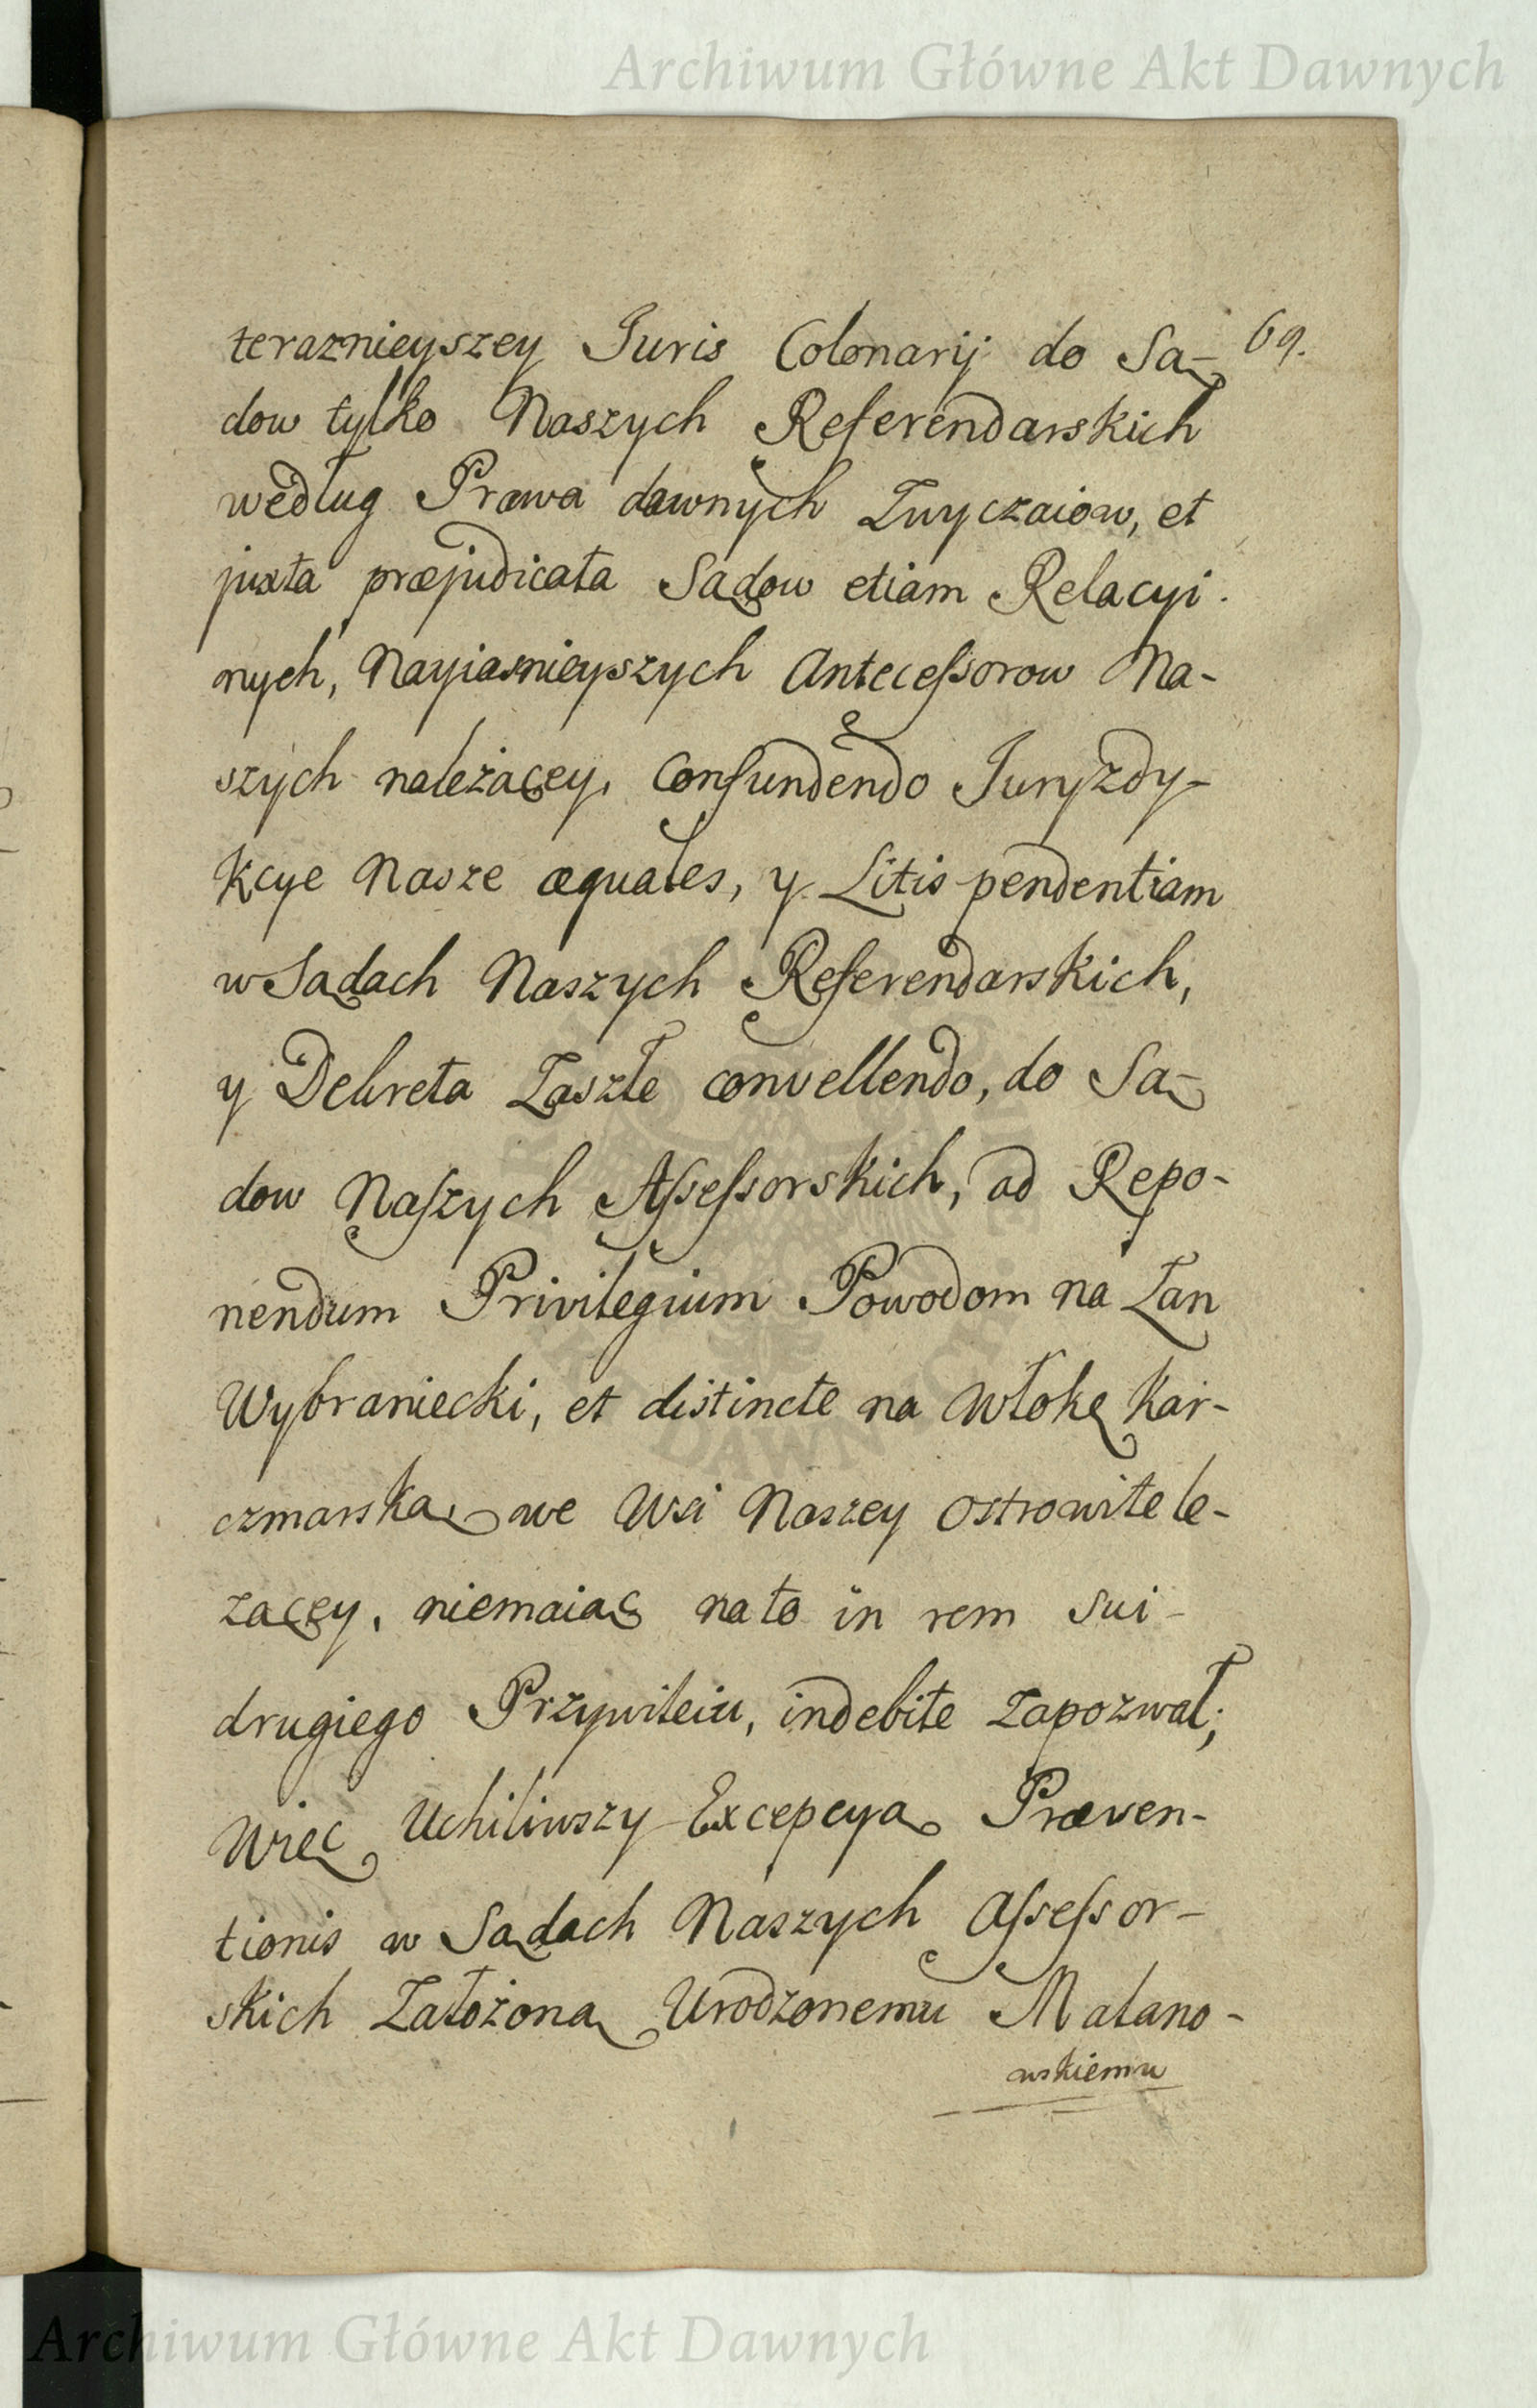 Archiwum Główne Akt Dawnych
69.
teraznieyszey Juris Colonarij do Są-
dow tylko Naszych Referendarskich
według Prawa dawnych Zwyczaiow, et
juxta præjudicata Sądow etiam Relacyi
nych, Nayiasnieyszych Antecessorow Na-
szych należącey, Confundendo Juryzdy-
kcye Nasze æquales, y Litis pendentiam
w Sądach Naszych Referendarskich,
y Dekreta Zaszłe convellendo, do Są-
dow Naszych Assessorskich, ad Repo-
nendum Privilegium Powodom na Łan
Wybraniecki, et distincte na Włokę Kar-
czmarską we Wsi Naszey Ostrowite le-
zącey, niemaiąc na to in rem sui
drugiego Przywileiu, indebite zapozwał;
Więc Uchiliwszy Excepcyą Præven-
tionis w Sądach Naszych Assessor-
skich Założoną Urodzonemu Malano-
wskiemu
Archiwum Główne Akt Dawnych